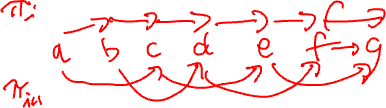 πᵢ f
a b c d e f → g
πᵢ₊₁